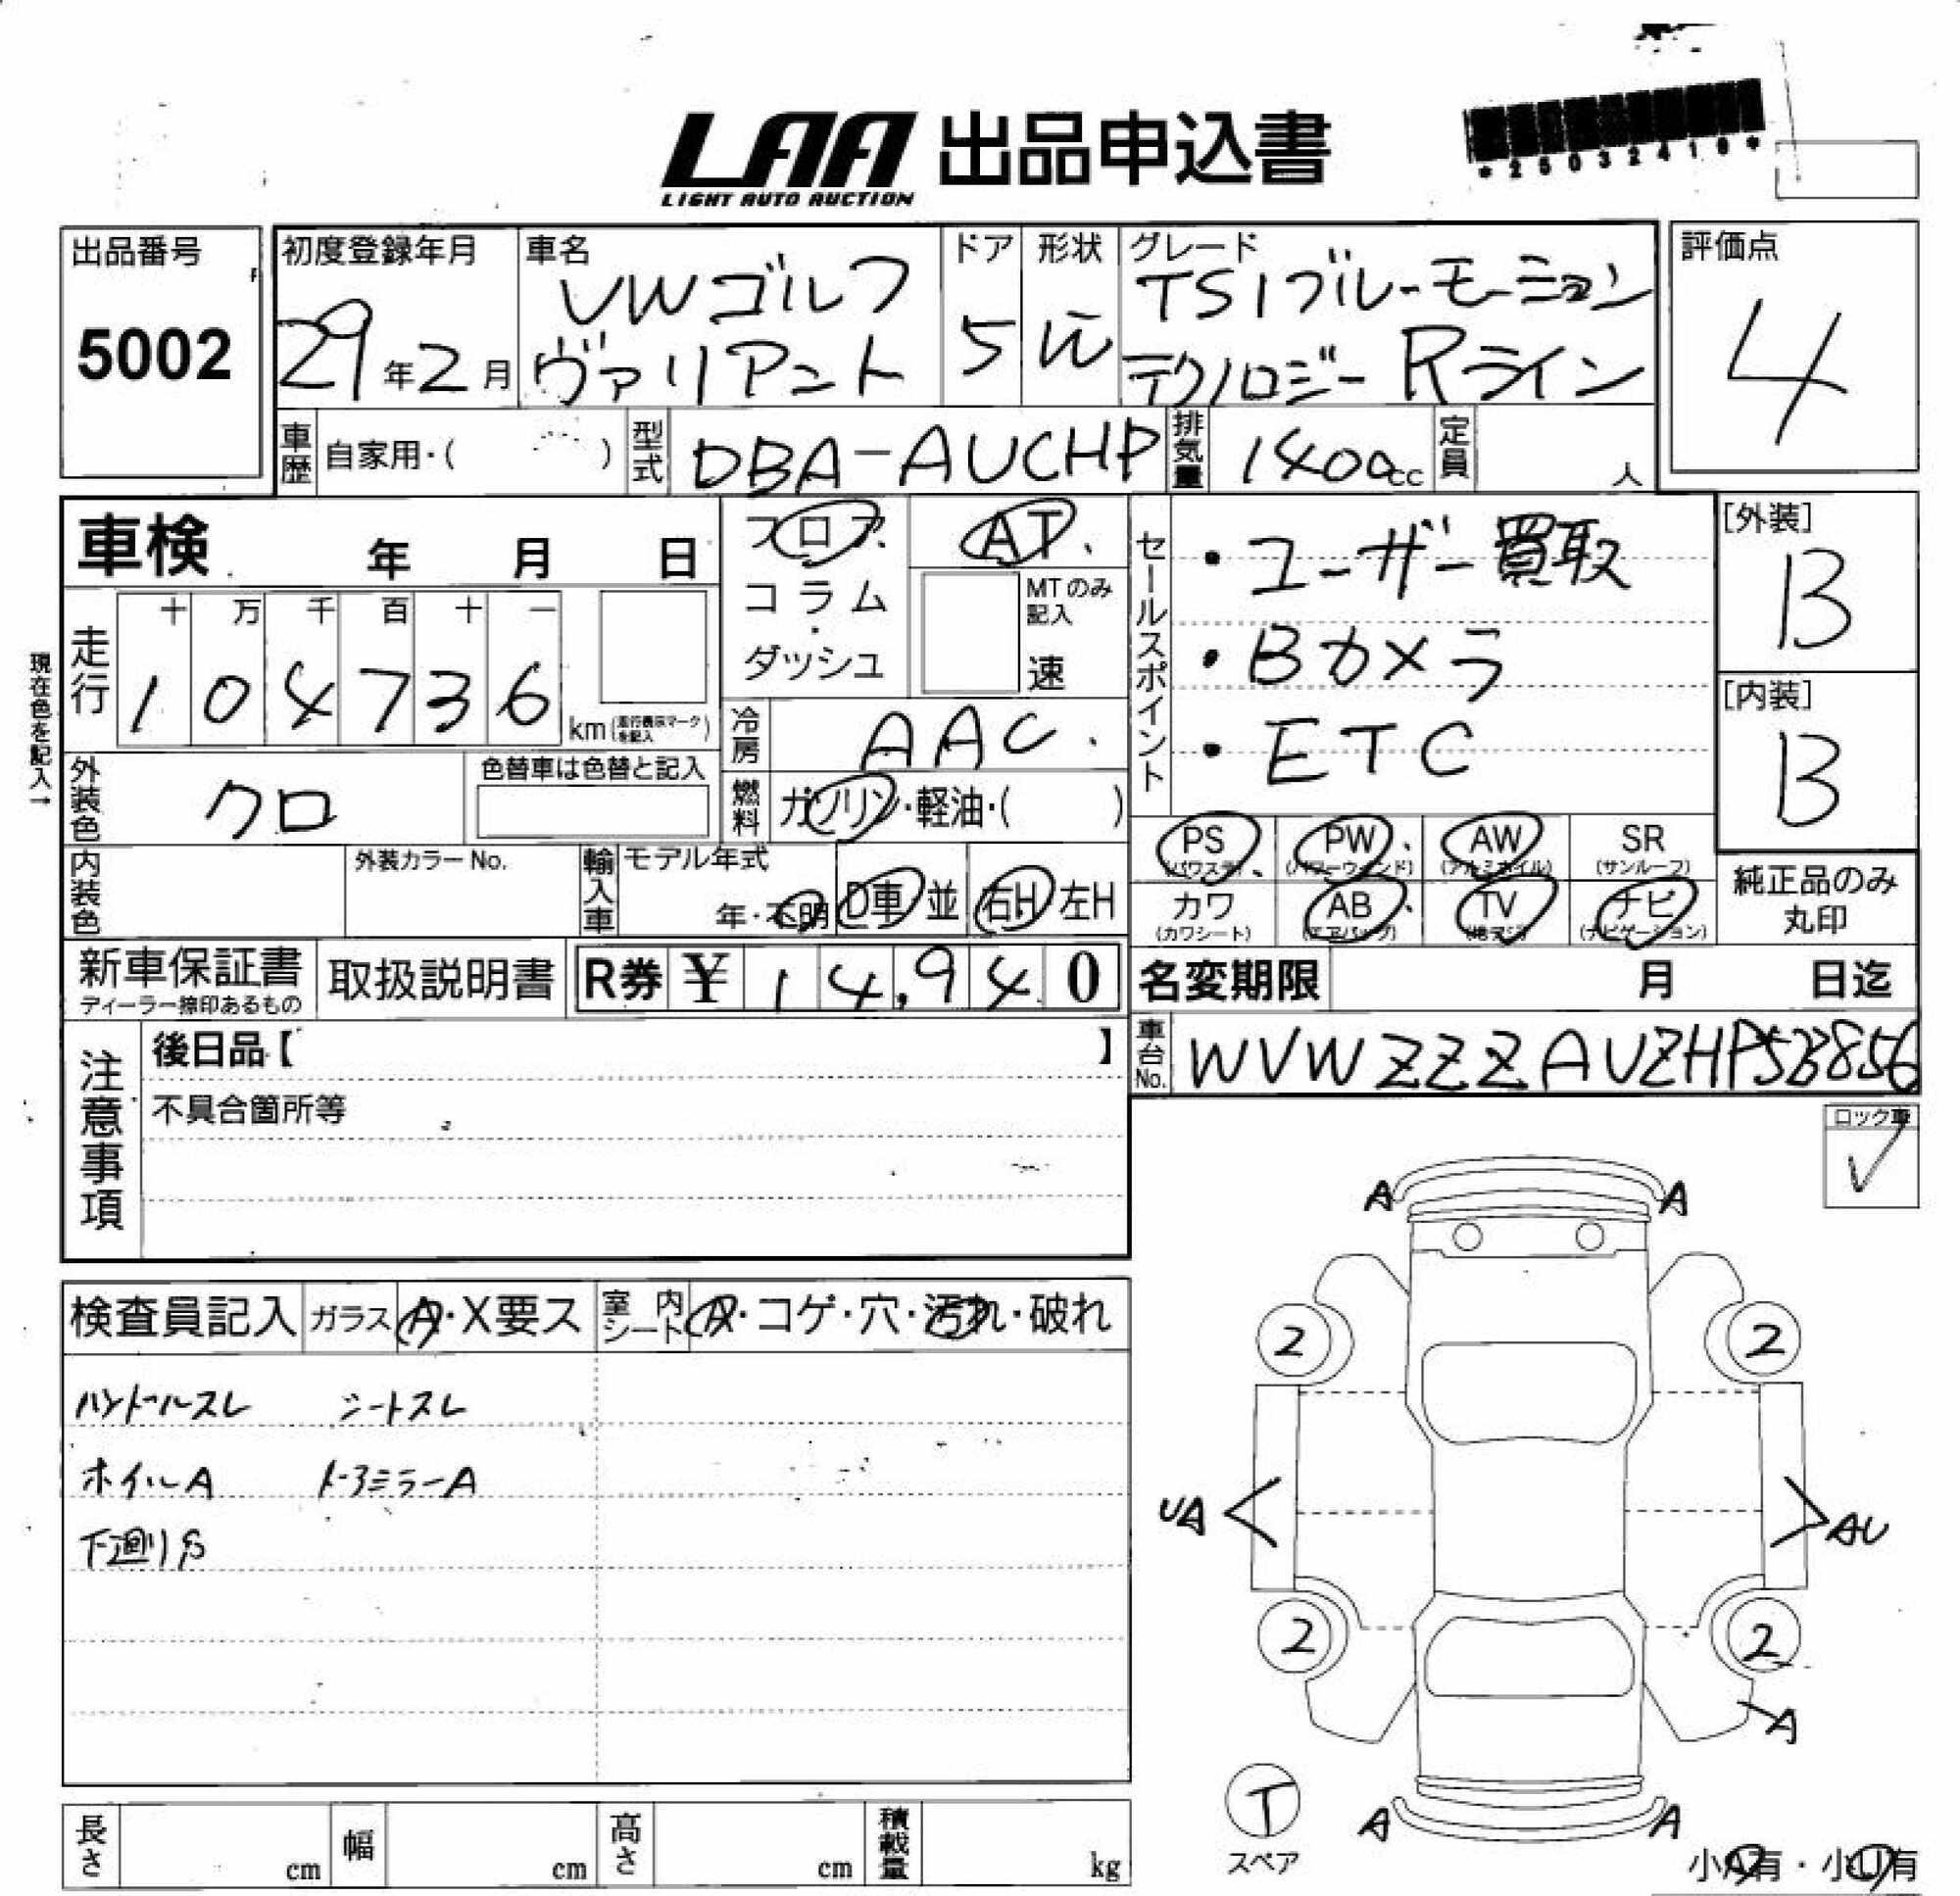 LAA 出品申込書
LIGHT AUTO AUCTION
*25032410*
出品番号
5002
初度登録年月
29年2月
車名
VWゴルフ
ヴァリアント
ドア
5
形状
W
グレード
TSIブルーモーション
テクノロジー Rライン
評価点
4
車歴 自家用・( )
型式 DBA-AUCHP
排気量 1400cc
定員 人
車検 年 月 日
フロア、
コラム・
ダッシュ
AT、
MTのみ記入
速
セールスポイント
・ユーザー買取
・Bカメラ
・ETC
[外装]
B
[内装]
B
現在色を記入→
走行
十 万 千 百 十 一
1 0 4 7 3 6 km (走行表示マークを記入)
冷房 AAC.
外装色 クロ
色替車は色替と記入
燃料 ガソリン・軽油・( )
内装色
外装カラーNo.
輸入車
モデル年式
年・不明
D車 並
右H 左H
PS (パワステ)
PW (パワーウィンド)
AW (アルミホイル)
SR (サンルーフ)
カワ (カワシート)
AB (エアバッグ)
TV (地デジ)
ナビ (ナビゲーション)
純正品のみ
丸印
新車保証書
ディーラー捺印あるもの
取扱説明書
R券 ¥ 14,940
名変期限 月 日迄
車台No. WVWZZZAUZHP53856
注意事項
後日品【 】
不具合箇所等
ロック車
✓
検査員記入
ガラス A・X要ス
室内シート A・コゲ・穴・汚れ・破れ
ハンドルスレ シートスレ
ホイルA ドアミラーA
下廻りS
A A
2 2
UA AU
2 2
A
T
スペア
A A
小A有・小U有
長さ cm
幅 cm
高さ cm
積載量 kg